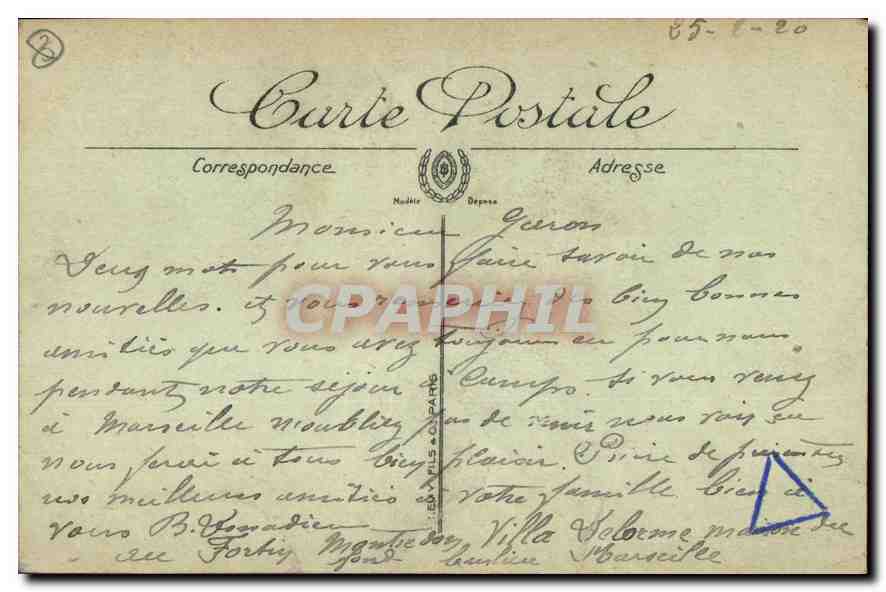 25-2-20
Carte Postale
Correspondance
Adresse
Modèle Déposé
Monsieur Garon
Deux mots pour vous faire savoir de nos
nouvelles. et vous remercier des bien bonnes
amitiés que vous avez toujours eu pour nous
pendant notre séjour à Camps. Si vous venez
à Marseille n'oubliez pas de venir nous voir ça
nous ferai à tous bien plaisir. Prière de présentez
nos meilleurs amitiés à votre famille bien à
vous B. Donadieu
Villa Delorme maison du
au Fortin Montredon
Marseille
FILS & C. PARIS
CPAPHIL